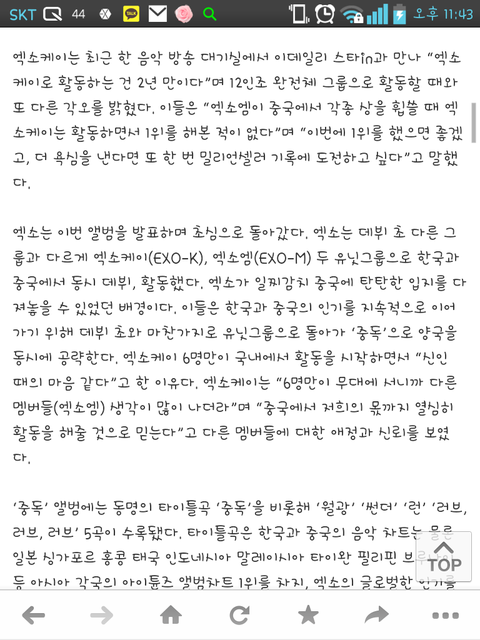 SKT 44 TALK 오후 11:43
엑소케이는 최근 한 음악 방송 대기실에서 이데일리 스타in과 만나 “엑소
케이로 활동하는 건 2년 만이다”며 12인조 완전체 그룹으로 활동할 때와
또 다른 각오를 밝혔다. 이들은 “엑소엠이 중국에서 각종 상을 휩쓸 때 엑
소케이는 활동하면서 1위를 해본 적이 없다”며 “이번에 1위를 했으면 좋겠
고, 더 욕심을 낸다면 또 한 번 밀리언셀러 기록에 도전하고 싶다”고 말했
다.
엑소는 이번 앨범을 발표하며 초심으로 돌아갔다. 엑소는 데뷔 초 다른 그
룹과 다르게 엑소케이(EXO-K), 엑소엠(EXO-M) 두 유닛그룹으로 한국과
중국에서 동시 데뷔, 활동했다. 엑소가 일찌감치 중국에 탄탄한 입지를 다
져놓을 수 있었던 배경이다. 이들은 한국과 중국의 인기를 지속적으로 이어
가기 위해 데뷔 초와 마찬가지로 유닛그룹으로 돌아가 ‘중독’으로 양국을
동시에 공략한다. 엑소케이 6명만이 국내에서 활동을 시작하면서 “신인
때의 마음 같다”고 한 이유다. 엑소케이는 “6명만이 무대에 서니까 다른
멤버들(엑소엠) 생각이 많이 나더라”며 “중국에서 저희의 몫까지 열심히
활동을 해줄 것으로 믿는다”고 다른 멤버들에 대한 애정과 신뢰를 보였
다.
‘중독’ 앨범에는 동명의 타이틀곡 ‘중독’을 비롯해 ‘월광’ ‘썬더’ ‘런’ ‘러브,
러브, 러브’ 5곡이 수록됐다. 타이틀곡은 한국과 중국의 음악 차트는 물론
일본 싱가포르 홍콩 태국 인도네시아 말레이시아 타이완 필리핀
등 아시아 각국의 아이튠즈 앨범차트 1위를 차지, 엑소의 글로벌한 인기를
TOP